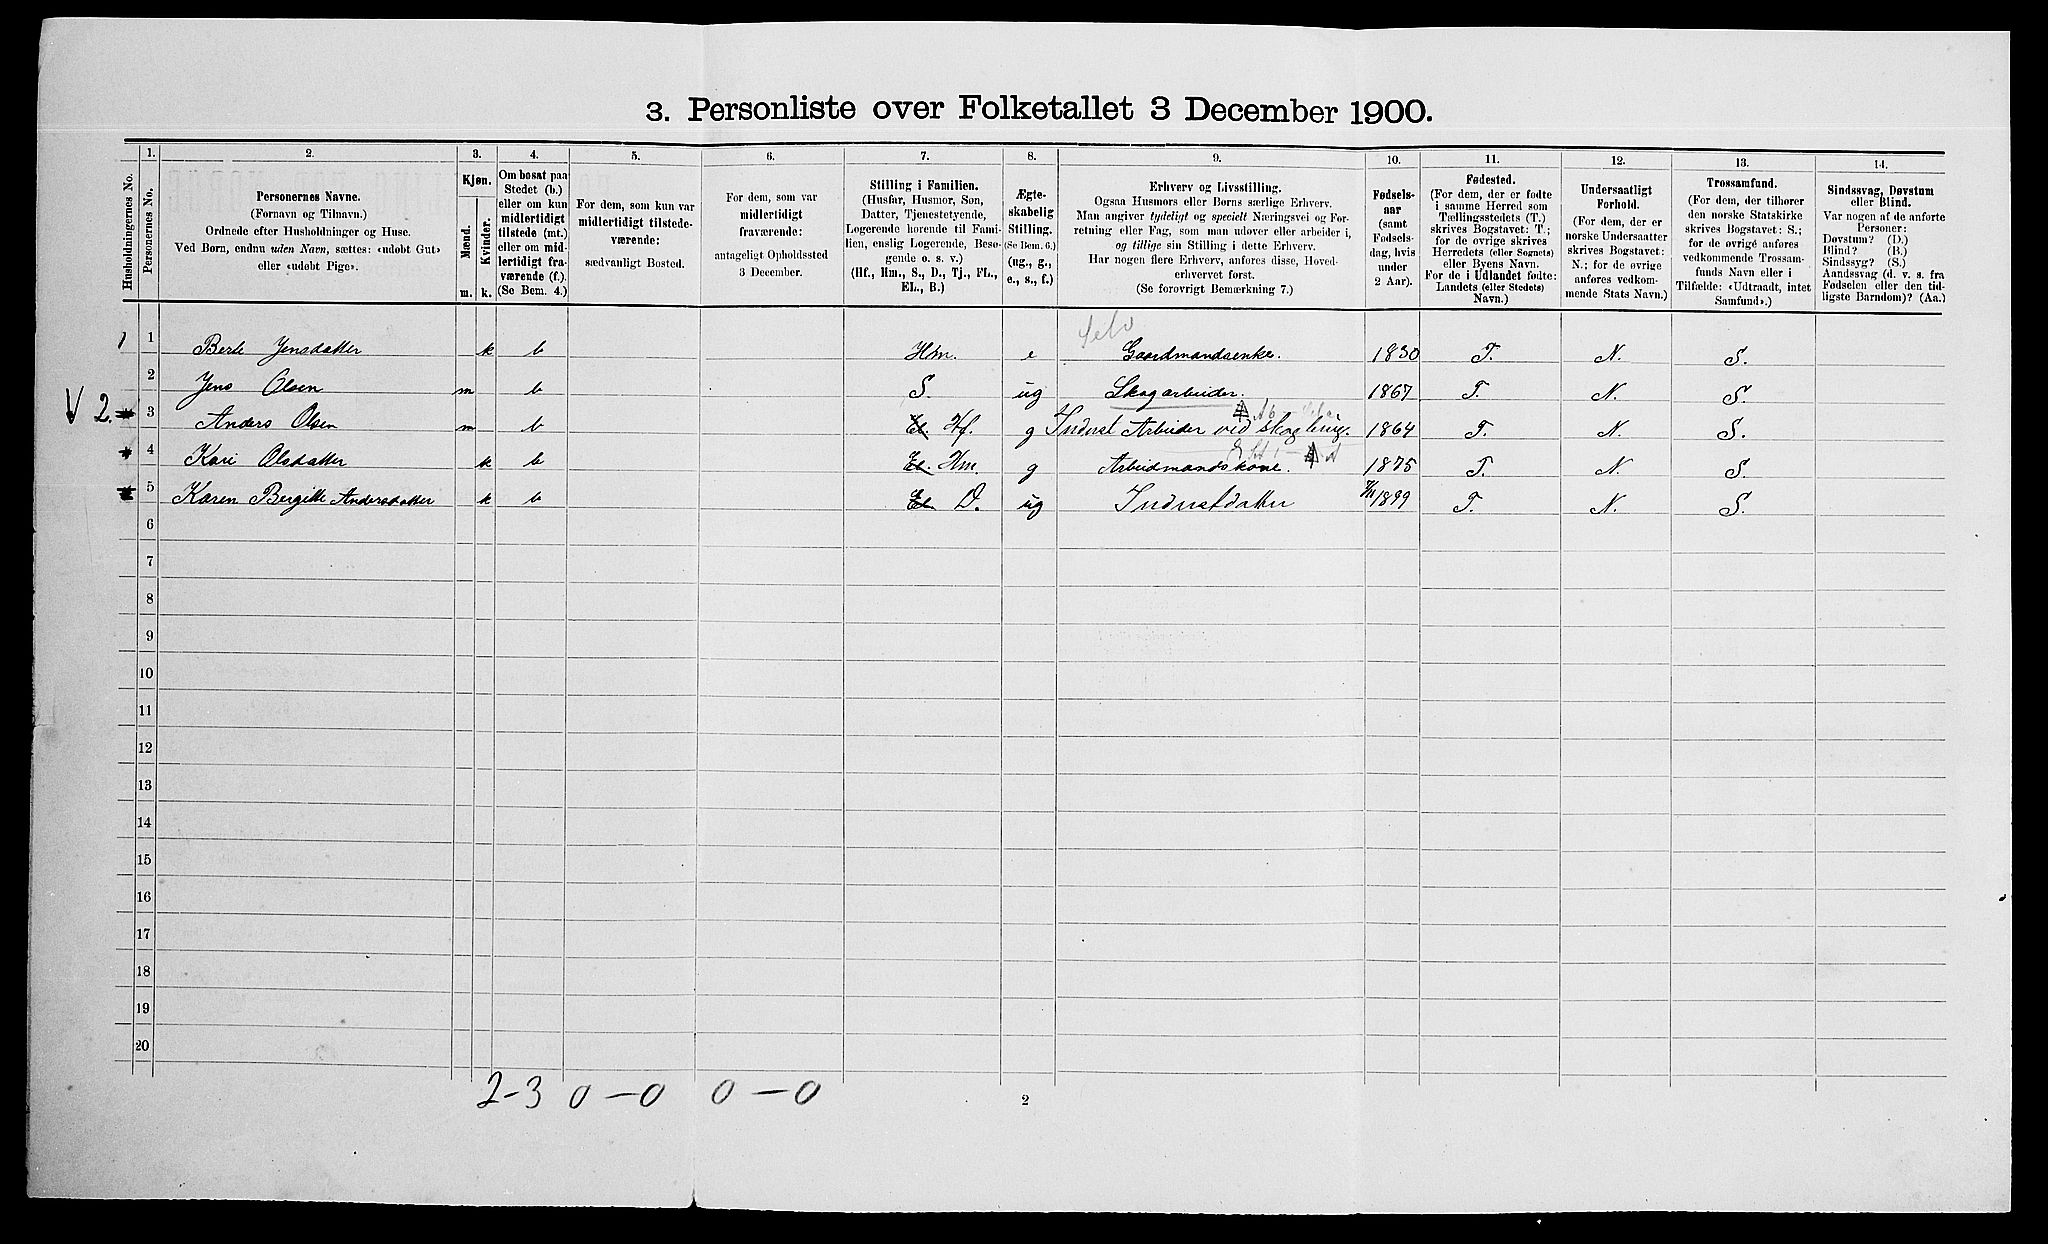 3. Personliste over Folketallet 3 December 1900.
Husholdningernes No.
1.
Personernes No.
2.
Personernes Navne.
(Fornavn og Tilnavn.)
Ordnede efter Husholdninger og Huse.
Ved Børn, endnu uden Navn, sættes: «udøbt Gut»
eller «udøbt Pige».
3.
Kjøn.
Mænd.
Kvinder.
m.
k.
4.
Om bosat paa
Stedet (b.)
eller om kun
midlertidigt
tilstede (mt.)
eller om mid-
lertidigt fra-
værende (f.).
(Se Bem. 4.)
5.
For dem, som kun var
midlertidigt tilstede-
værende:
sædvanligt Bosted.
6.
For dem, som var
midlertidigt
fraværende:
antageligt Opholdssted
3 December.
7.
Stilling i Familien.
(Husfar, Husmor, Søn,
Datter, Tjenestetyende,
Logerende hørende til Fami-
lien, enslig Logerende, Besø-
gende o. s. v.)
(Hf., Hm., S., D., Tj., FL.,
EL., B.)
8.
Ægte-
skabelig
Stilling.
(Se Bem. 6.)
(ug., g.,
e., s., f.)
9.
Erhverv og Livsstilling.
Ogsaa Husmors eller Børns særlige Erhverv.
Man angiver tydeligt og specielt Næringsvei og For-
retning eller Fag, som man udøver eller arbeider i,
og tillige sin Stilling i dette Erhverv.
Har nogen flere Erhverv, anføres disse, Hoved-
erhvervet først.
(Se forøvrigt Bemærkning 7.)
10.
Fødsels-
aar
(samt
Fødsels-
dag, hvis
under
2 Aar).
11.
Fødested.
(For dem, der er fødte
i samme Herred som
Tællingsstedets (T.)
skrives Bogstavet: T.;
for de øvrige skrives
Herredets (eller Sognets)
eller Byens Navn.
For de i Udlandet fødte:
Landets (eller Stedets)
Navn.)
12.
Undersaatligt
Forhold.
(For dem, der er
norske Undersaatter
skrives Bogstavet:
N.; for de øvrige
anføres vedkom-
mende Stats Navn.)
13.
Trossamfund.
(For dem, der tilhører
den norske Statskirke
skrives Bogstavet: S.;
for de øvrige anføres
vedkommende Trossam-
funds Navn eller i
Tilfælde: «Udtraadt, intet
Samfund».)
14.
Sindssvag, Døvstum
eller Blind.
Var nogen af de anførte
Personer:
Døvstum? (D.)
Blind? (B.)
Sindssyg? (S.)
Aandssvag (d. v. s. fra
Fødselen eller den tid-
ligste Barndom)? (Aa.)
1 1 Berte Jensdatter k b Hm. e Gaardmandsenke. 1830 T. N. S.
2 Jens Olsen m b S. ug Skogarbeider. 1867 T. N. S.
2. 3 Anders Olsen m b El. Hf. g Inderst Arbeider ved 1864 T. N. S.
4 Kari Olsdatter k b El. Hm. g Arbeidmandskone. 1875 T. N. S.
5 Karen Bergitte Andersdatter k b El. D. ug 1899 T. N. S.
6
7
8
9
10
11
12
13
14
15
16
17
18
19
20
2-3 0-0 0-0
2